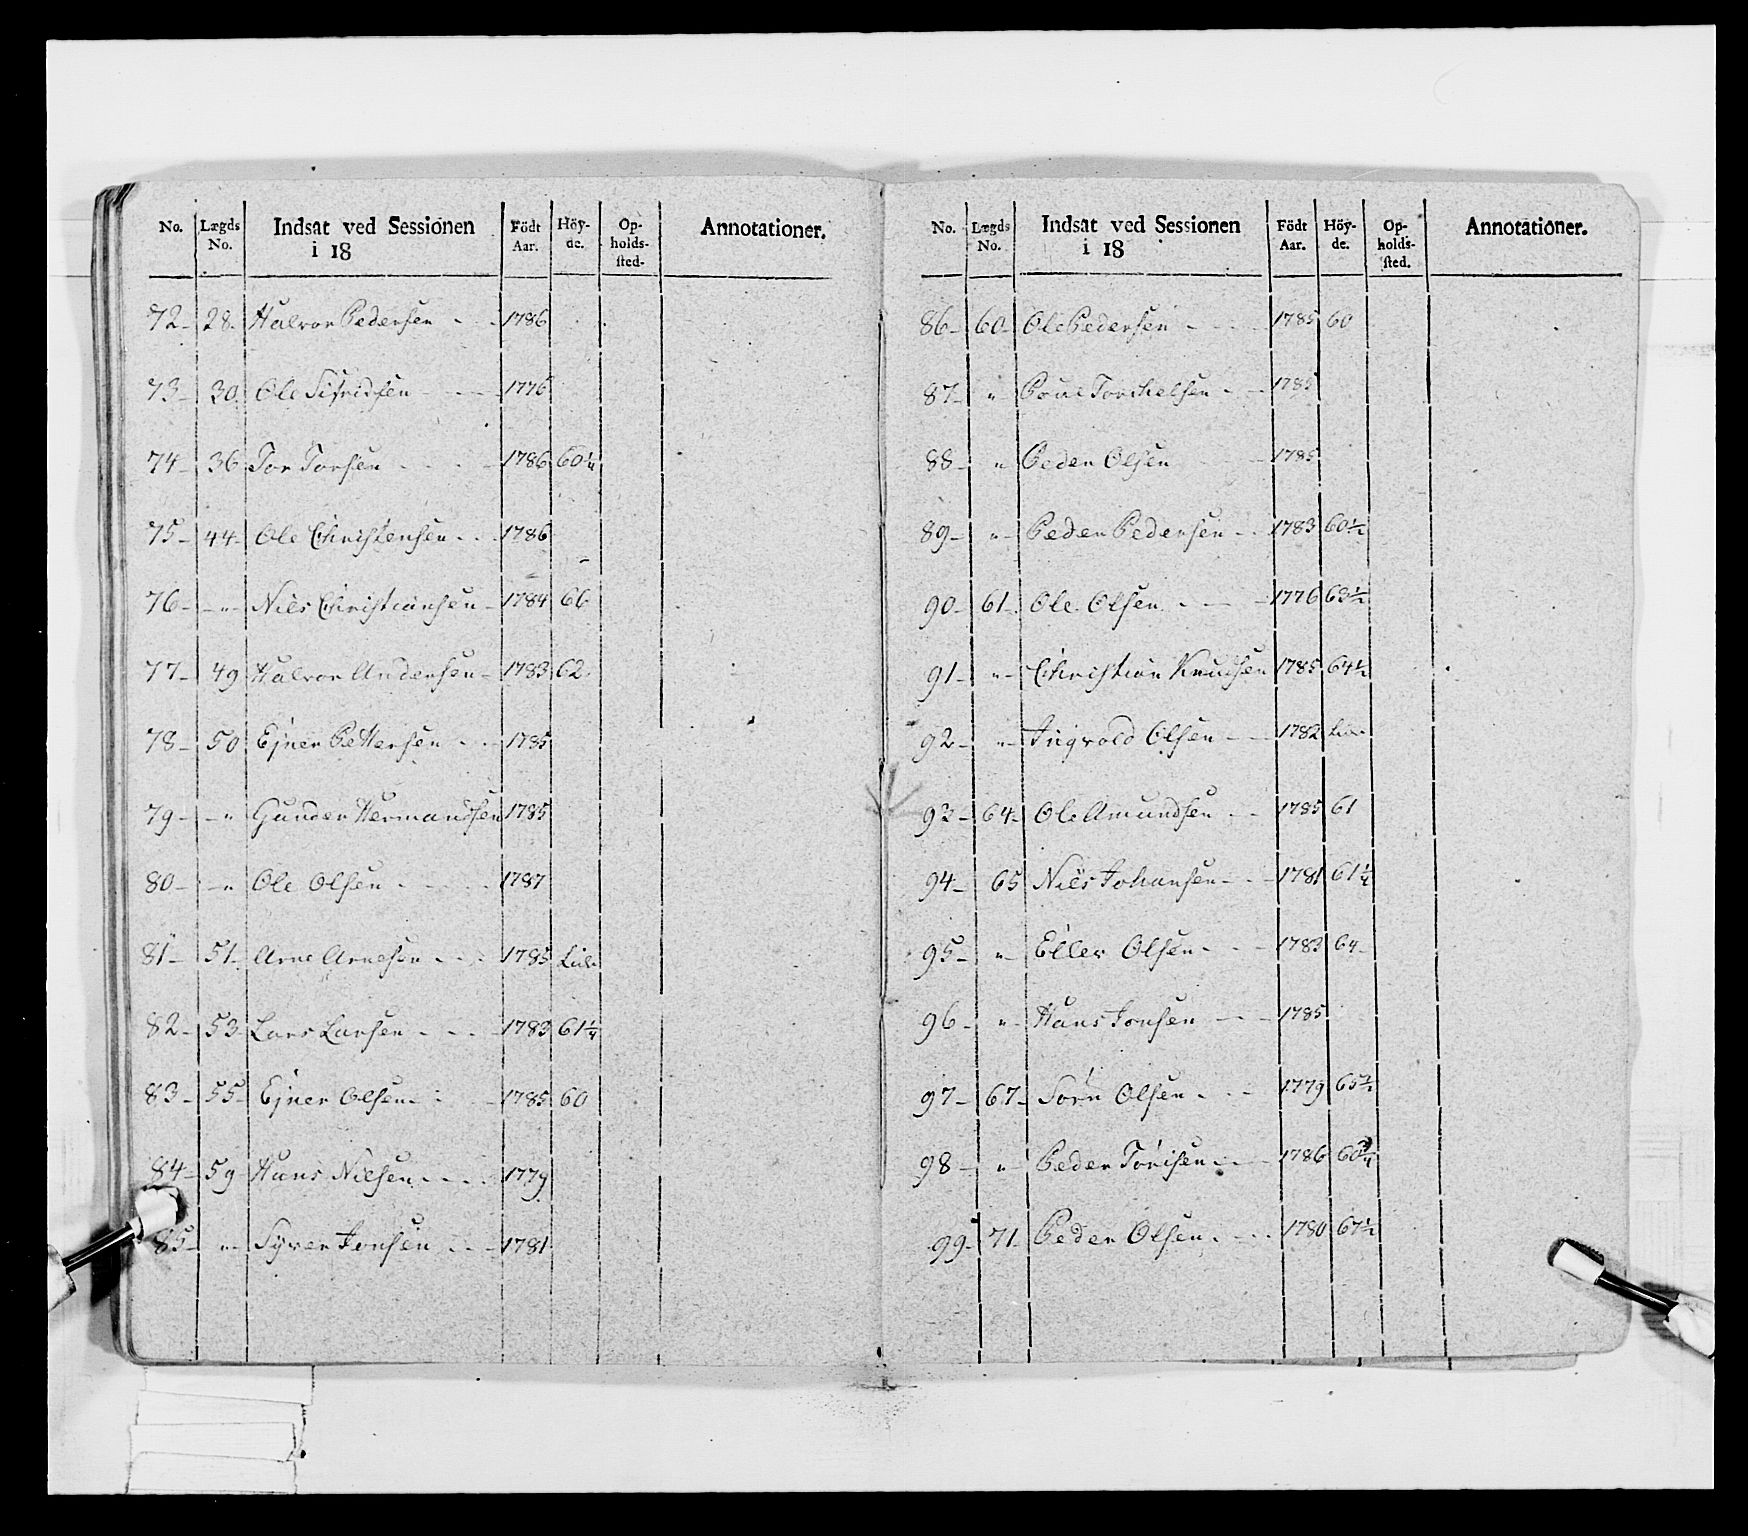 No. Lægds No. Indsat ved Sessionen i 18 Födt Aar. Höy-de. Op-holds-sted. Annotationer.
72 - 28. Halvor Pedersen - - 1786
73 - 30. Ole Sifridsen - - - 1776
74 - 36 Tor Torsen - - - 1786 60 1/4
75 - 44 - Ole Christensen - - 1786
76 - - " - Niels Christiansen - 1784 66
77 - 49 Halvor Andersen - 1783 62
78 - 50 Ejner Pettersen - - 1785
79 - - " Gunder Hermandsen 1785
80 - - " Ole Olsen - - - 1787
81 - 51 - Arne Arnesen - - - 1785
82 - 53 Lars Larsen - - - 1783 61 1/4
83 - 55 - Ejner Olsen - - 1785 60
84 - 59 Hans Nielsen - - - 1779
85 - " - Syver Jonsen - - 1781
No. Lægds No. Indsat ved Sessionen i 18 Födt Aar. Höy-de. Op-holds-sted. Annotationer.
86 - 60 - Ole Pedersen - - - 1785 60
87 - " Poul Torkelsen - - 1785
88 - " Peder Olsen - 1785
89 - " - Peder Pedersen - - 1783 60 1/2
90 - 61 - Ole Olsen - - - 1776 63 1/2
91 - " - Christian Knudsen 1785 64 1/2
92 - " - Ingvold Olsen - - 1782
93 - 64 - Ole Amundsen - - 1785 61
94 - 65 Niels Johansen - - 1781 61 1/2
95 - " - Eller Olsen - - - 1783 64 -
96 - " - Hans Jonsen - - 1785
97 - 67 - Sörn Olsen - - - 1779 65
98 - " - Peder - - 1786 60 3/4
99 - 71 - Peder Olsen - - - 1780 67 1/2